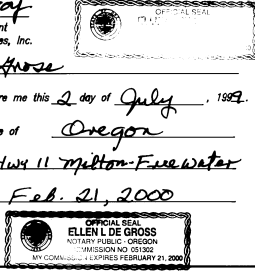 nt
OFFICIAL SEAL
es, Inc.
Grose
re me this 2 day of July, 1999.
e of Oregon
Hwy 11 Milton-Freewater
Feb. 21, 2000
OFFICIAL SEAL
ELLEN L DE GROSS
NOTARY PUBLIC - OREGON
COMMISSION NO 051302
MY COMMISSION EXPIRES FEBRUARY 21, 2000